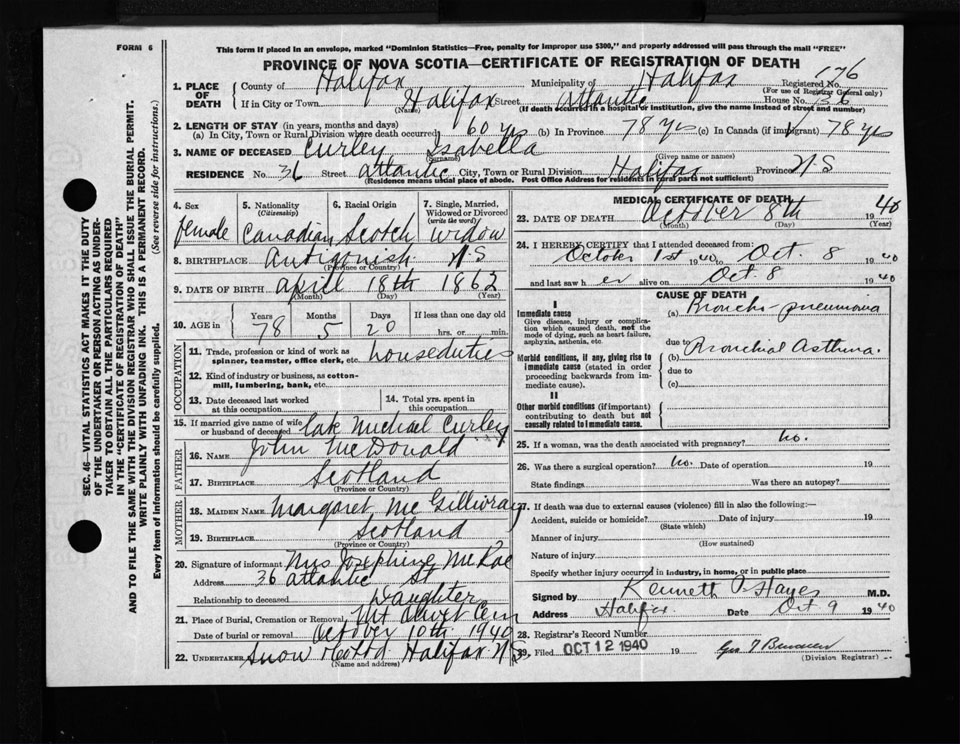 FORM 6
This form if placed in an envelope, marked "Dominion Statistics—Free, penalty for improper use $300," and properly addressed will pass through the mail "FREE"
PROVINCE OF NOVA SCOTIA—CERTIFICATE OF REGISTRATION OF DEATH
SEC. 46—VITAL STATISTICS ACT MAKES IT THE DUTY
OF THE UNDERTAKER OR PERSON ACTING AS UNDER-
TAKER TO OBTAIN ALL THE PARTICULARS REQUIRED
IN THE "CERTIFICATE OF REGISTRATION OF DEATH"
AND TO FILE THE SAME WITH THE DIVISION REGISTRAR WHO SHALL ISSUE THE BURIAL PERMIT.
WRITE PLAINLY WITH UNFADING INK. THIS IS A PERMANENT RECORD.
Every item of Information should be carefully supplied. (See reverse side for instructions.)
1. PLACE OF DEATH County of Halifax Municipality of Halifax Registered No. 176
(For use of Registrar General only)
If in City or Town Halifax Street Atlantic House No. 36
(Name) (If death occurred in a hospital or institution, give the name instead of street and number)
2. LENGTH OF STAY (in years, months and days)
(a) In City, Town or Rural Division where death occurred 60 yrs (b) In Province 78 yrs (c) In Canada (if immigrant) 78 yrs
3. NAME OF DECEASED Curley Isabella
(Surname) (Given name or names)
RESIDENCE No. 36 Street Atlantic City, Town or Rural Division Halifax Province N-S
(Residence means usual place of abode. Post Office Address for residents in rural parts not sufficient)
4. Sex 5. Nationality (Citizenship) 6. Racial Origin 7. Single, Married, Widowed or Divorced (write the word)
female Canadian Scotch widow
8. BIRTHPLACE Antigonish N-S
(Province or Country)
9. DATE OF BIRTH April 18th 1862
(Month) (Day) (Year)
10. AGE in Years Months Days If less than one day old
78 5 20 hrs. or min.
OCCUPATION
11. Trade, profession or kind of work as spinner, teamster, office clerk, etc. houseduties
12. Kind of industry or business, as cotton-mill, lumbering, bank, etc.
13. Date deceased last worked at this occupation 14. Total yrs. spent in this occupation
15. If married give name of wife or husband of deceased late Michael Curley
FATHER
16. NAME John McDonald
17. BIRTHPLACE Scotland
(Province or Country)
MOTHER
18. MAIDEN NAME Margaret McGillivray
19. BIRTHPLACE Scotland
(Province or Country)
20. Signature of informant Mrs Josephine McRae
Address 36 Atlantic St
Relationship to deceased Daughter
21. Place of Burial, Cremation or Removal Mt Olivet Cem
Date of burial or removal October 10th 1940
22. UNDERTAKER Snow & Co Ltd Halifax N.S.
(Name and address)
MEDICAL CERTIFICATE OF DEATH
23. DATE OF DEATH October 8th 1940
(Month) (Day) (Year)
24. I HEREBY CERTIFY that I attended deceased from:
October 1st 1940 to Oct. 8 1940
and last saw her alive on Oct. 8 1940
CAUSE OF DEATH
I
Immediate cause
Give disease, injury or complication which caused death, not the mode of dying, such as heart failure, asphyxia, asthenia, etc.
(a) Broncho-pneumonia
due to
Morbid conditions, if any, giving rise to immediate cause (stated in order proceeding backwards from immediate cause).
(b) Bronchial Asthma.
due to
(c)
II
Other morbid conditions (if important) contributing to death but not causally related to immediate cause.
25. If a woman, was the death associated with pregnancy? no.
26. Was there a surgical operation? no. Date of operation 19
State findings Was there an autopsy?
27. If death was due to external causes (violence) fill in also the following:—
Accident, suicide or homicide? Date of injury 19
(State which)
Manner of injury
(How sustained)
Nature of injury
Specify whether injury occurred in industry, in home, or in public place
Signed by Kenneth Hayes M.D.
Address Halifax. Date Oct 9 1940
28. Registrar's Record Number
29. Filed OCT 12 1940 19
(Division Registrar)